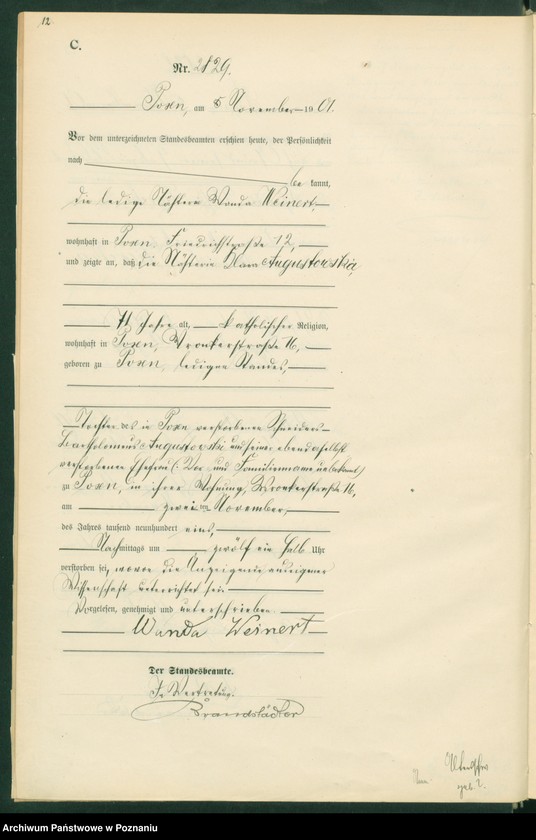 12.
C.
Nr. 2829.
Posen, am 5 November 1901.
Vor dem unterzeichneten Standesbeamten erschien heute, der Persönlichkeit
nach
be kannt,
die ledige Nähterin Wanda Weinert,
wohnhaft in Posen, Friedrichstraße 12,
und zeigte an, daß die Nähterin Clara Augustowska,
71 Jahre alt, katholischer Religion,
wohnhaft in Posen, Wronkerstraße 16,
geboren zu Posen, ledigen Standes,
Tochter des in Posen verstorbenen Schneiders
Bartholomäus Augustowski und seiner ebendaselbst
verstorbenen Ehefrau (: Vor und Familienname unbekannt)
zu Posen, in ihrer Wohnung, Wronkerstraße 16,
am zweiten November,
des Jahres tausend neunhundert eins,
Nachmittags um zwölf ein halb Uhr
verstorben sei, wovon die Anzeigerin aus eigener
Wissenschaft unterrichtet sei.
Vorgelesen, genehmigt und unterschrieben
Wanda Weinert
Der Standesbeamte.
In Vertretung.
Brandstädter
Archiwum Państwowe w Poznaniu